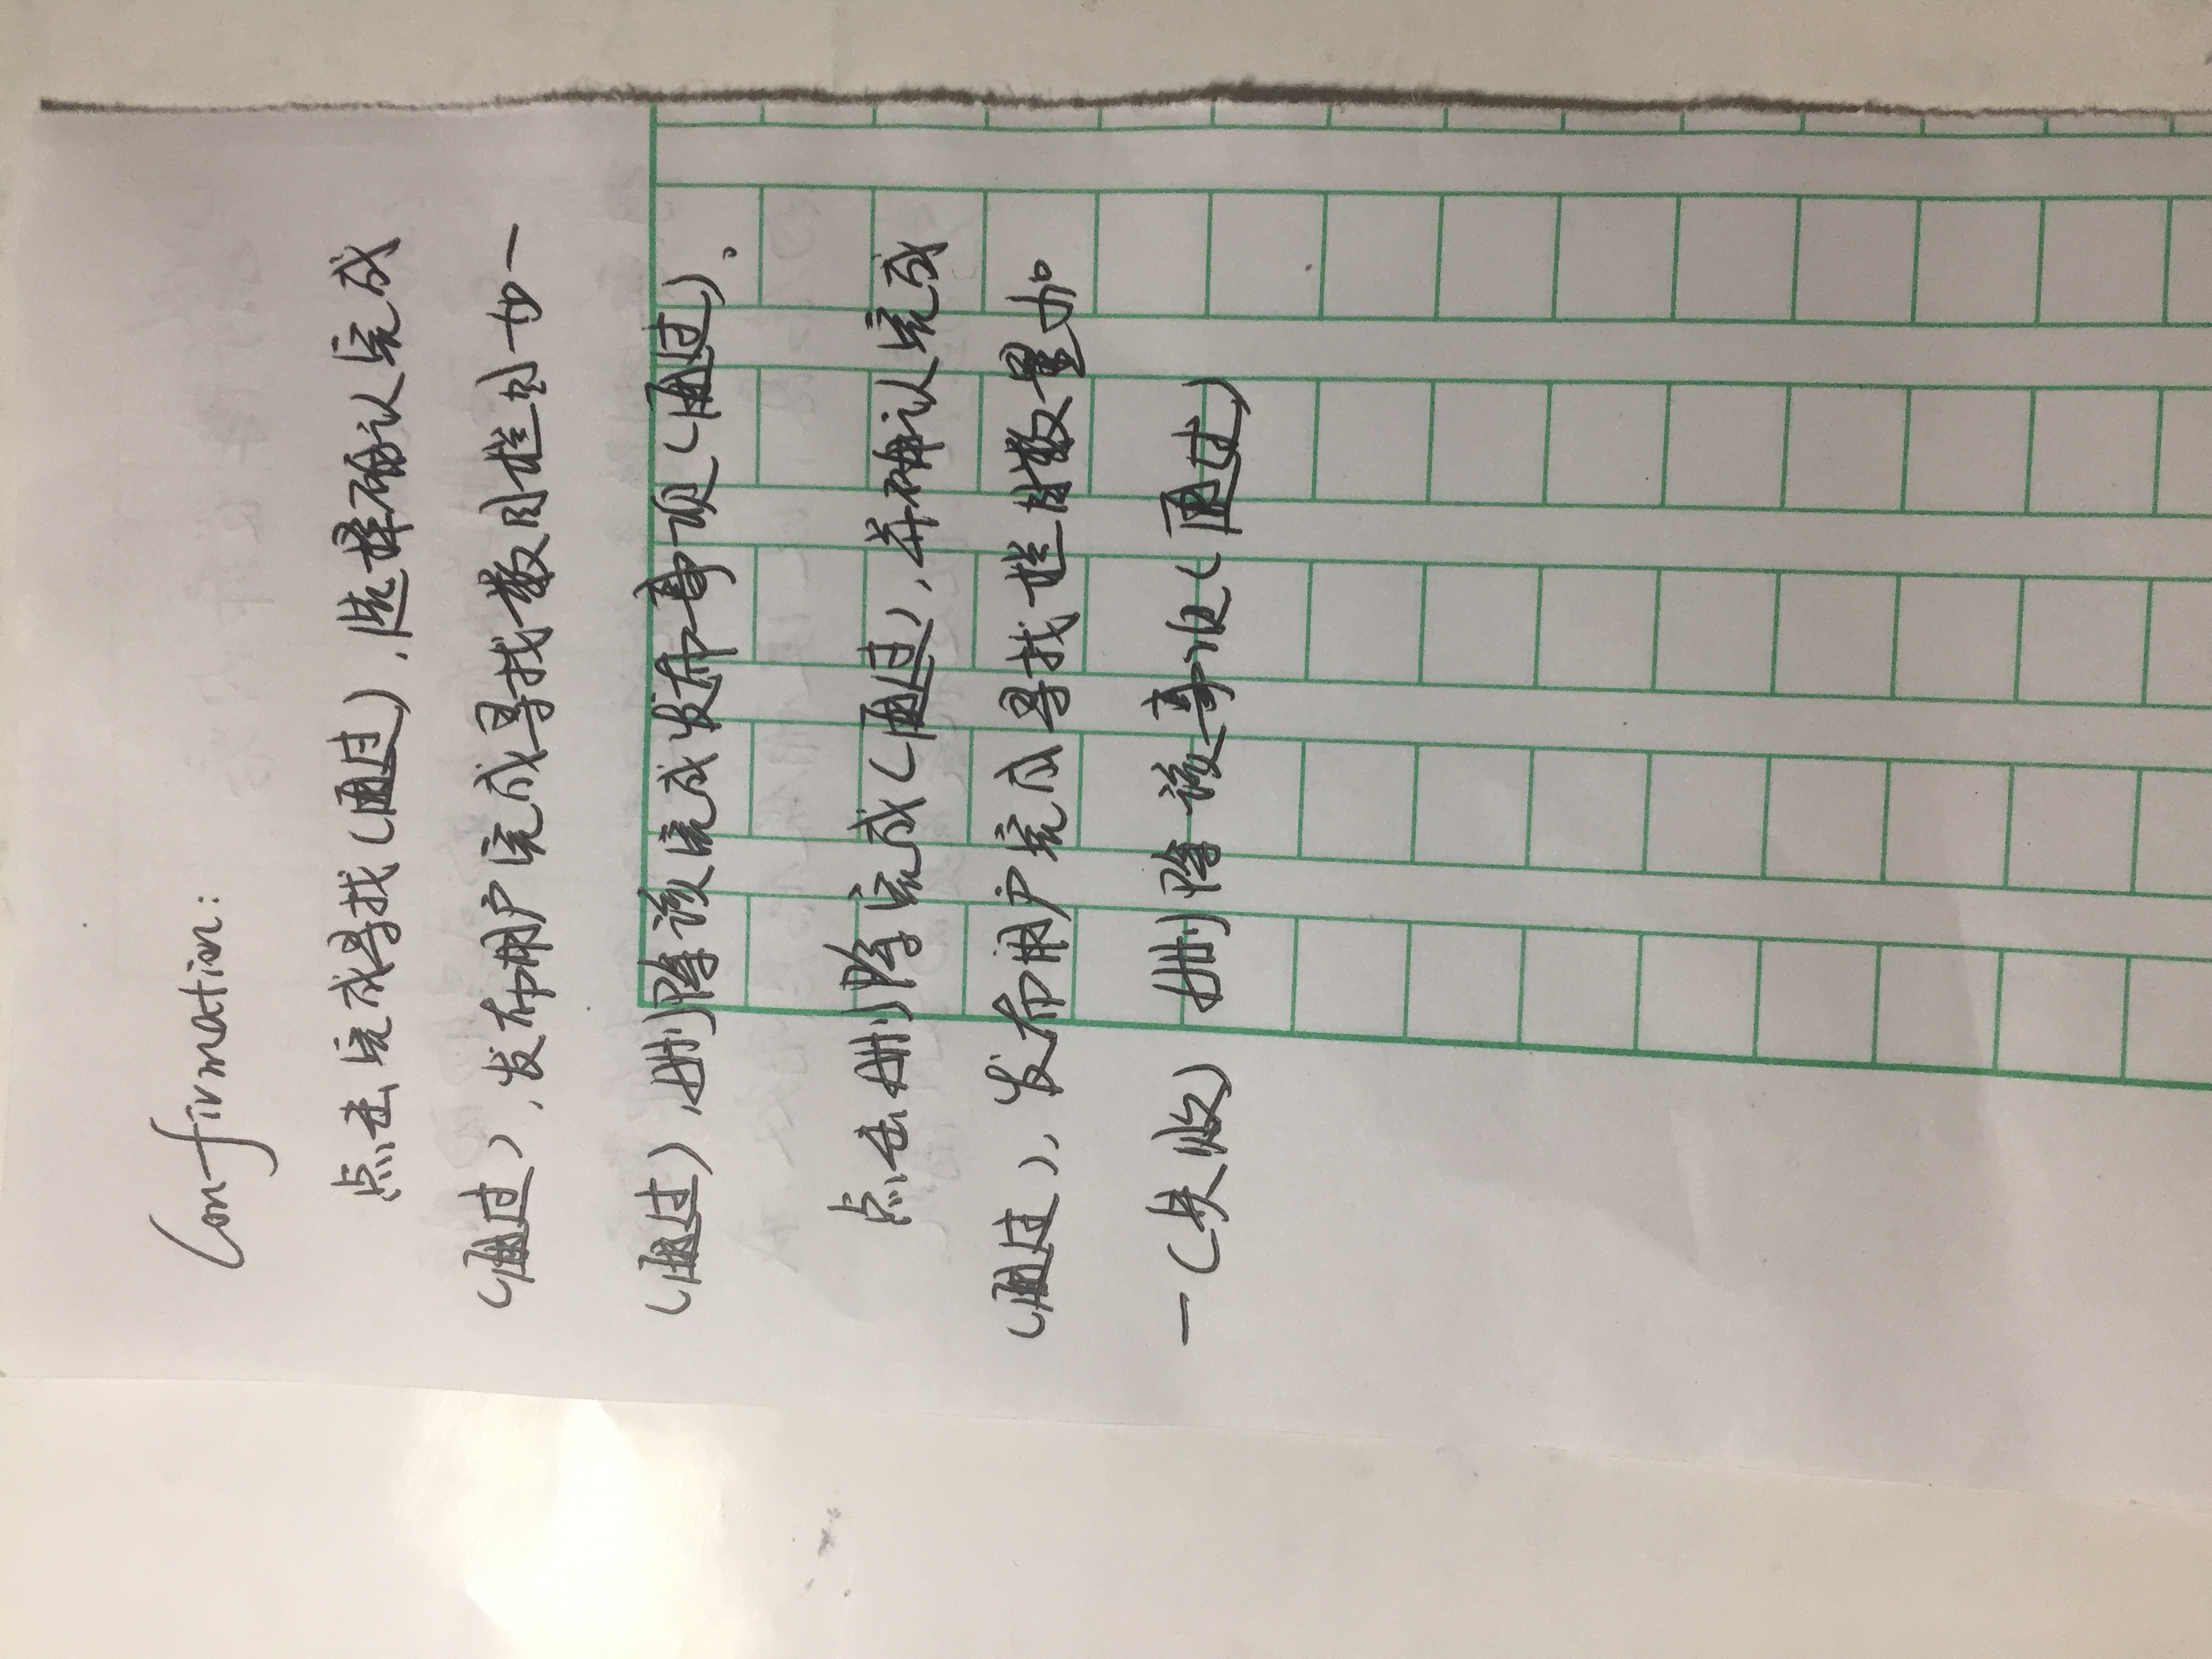 Confirmation:
点击完成寻找(通过),选择确认完成
(通过),发布用户完成寻找数目栏目加一
(通过),删除该完成发布事项(通过)。
点击删除完成(通过),并确认完成
(通过),发布用户完成寻找栏目数量加
一(失败) 删除该事项(通过)